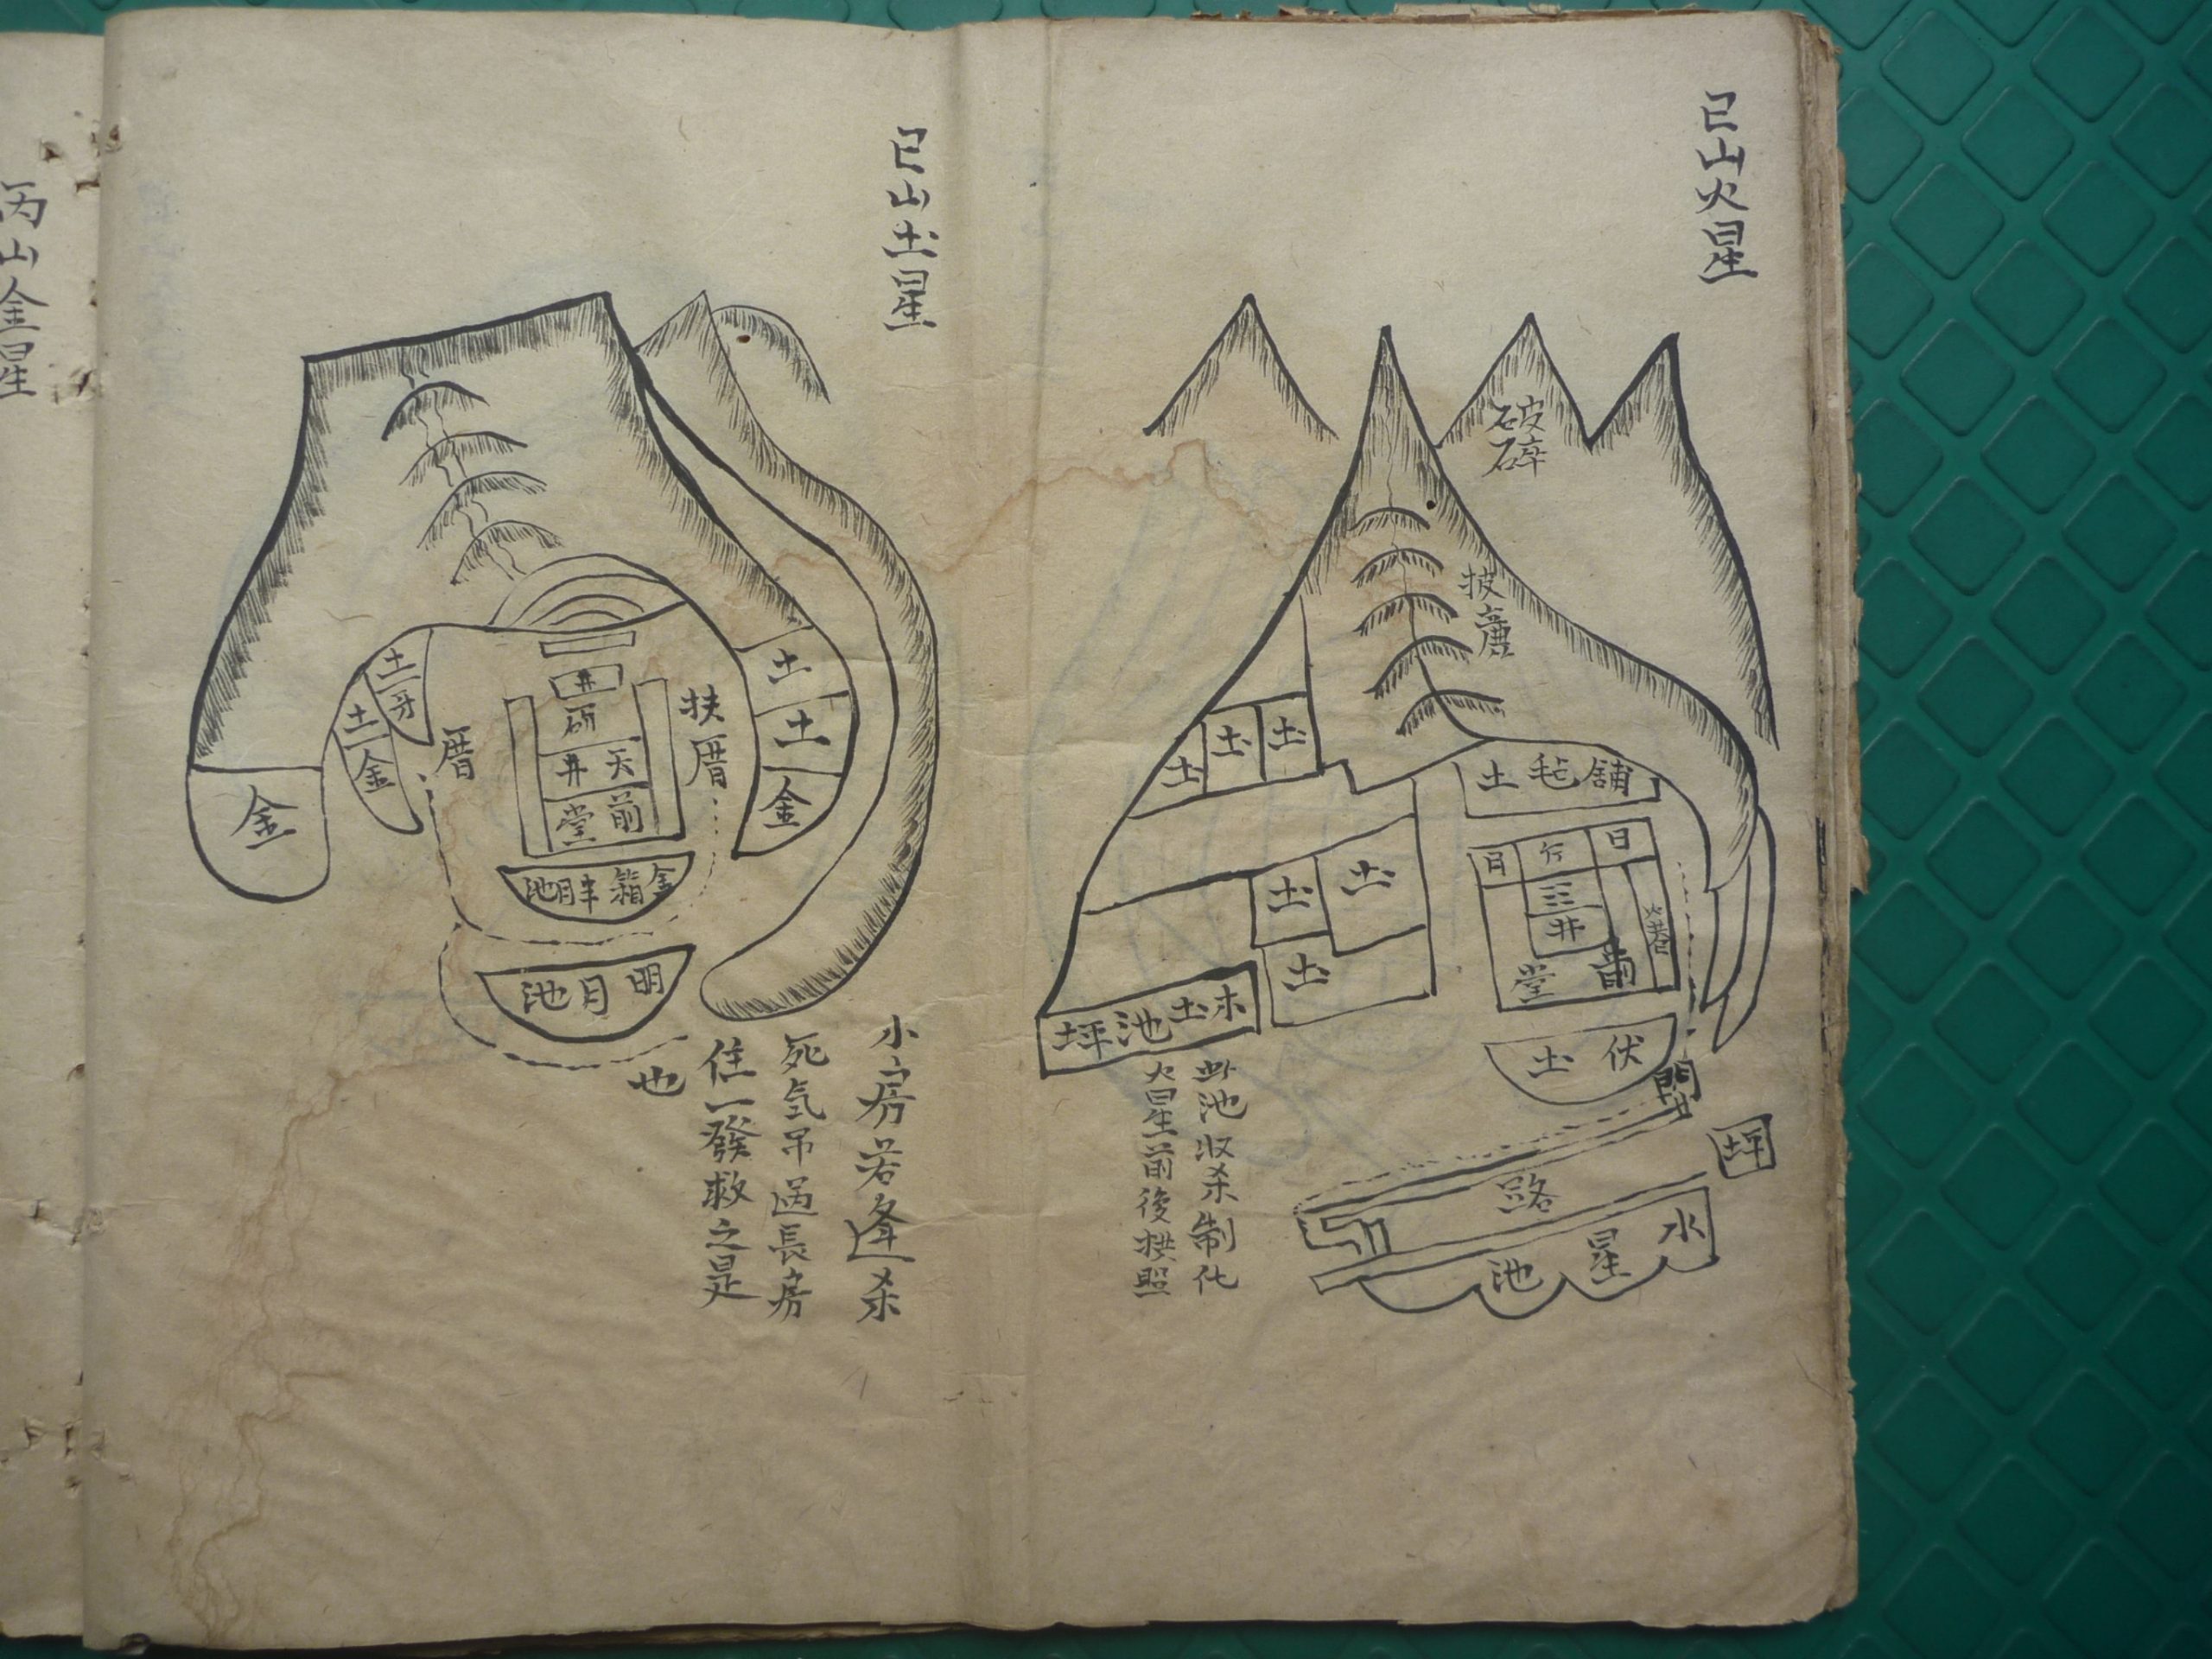 巳山火星
破碎
披廉
土
土
土
舖毡土
日
行
月
三
井
前堂
土
土
土
木土池坪
此池収杀制化
火星前後拱照
伏土
門
坪
路
水星池
巳山土星
土
土
金
扶厝
井
研
天井
前堂
厝
土牙
土金
金
金箱半月池
明月池
小房若逢杀
死気吊過長房
住一發救之是
也
丙山金星